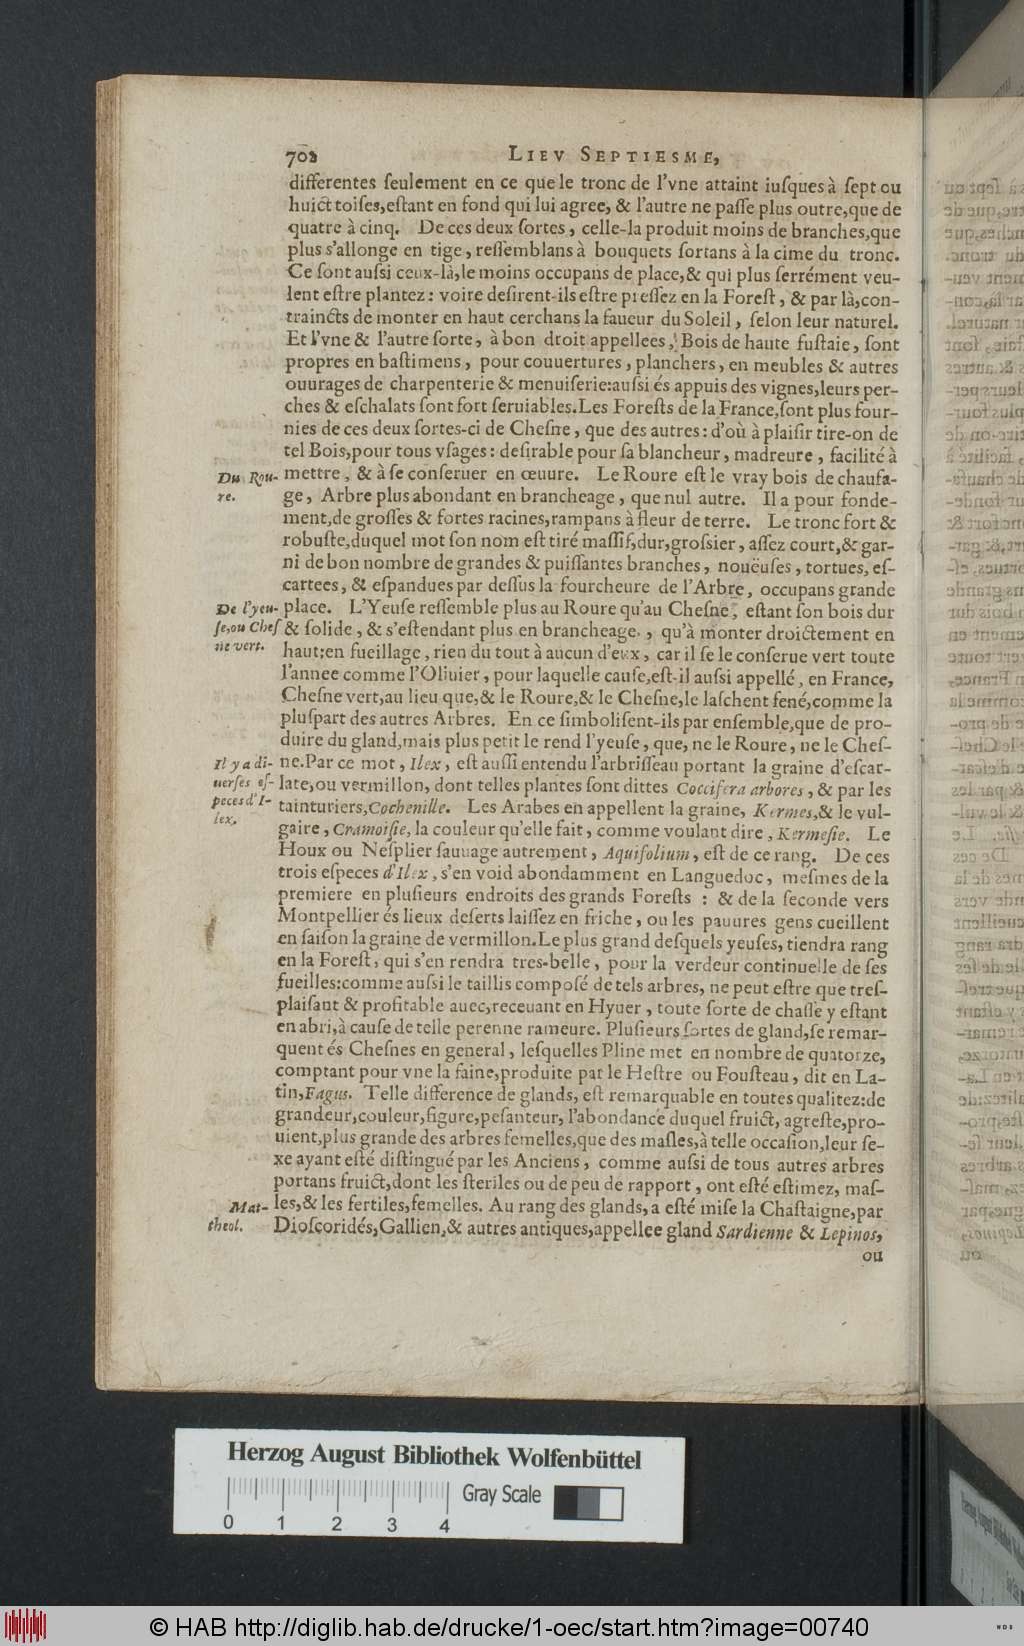 702 LIEV SEPTIESME,
differentes ſeulement en ce que le tronc de l'vne attaint iuſques à ſept ou
huict toiſes,eſtant en fond qui lui agree, & l'autre ne paſſe plus outre,que de
quatre à cinq. De ces deux ſortes, celle-la produit moins de branches,que
plus s'allonge en tige, reſſemblans à bouquets ſortans à la cime du tronc.
Ce ſont auſsi ceux-là,le moins occupans de place,& qui plus ſerrément veu-
lent eſtre plantez: voire deſirent-ils eſtre preſſez en la Foreſt, & par là,con-
traincts de monter en haut cerchans la faueur du Soleil, ſelon leur naturel.
Et l'vne & l'autre ſorte, à bon droit appellees, Bois de haute fuſtaie, ſont
propres en baſtimens, pour couuertures, planchers, en meubles & autres
ouurages de charpenterie & menuiſerie:auſsi és appuis des vignes,leurs per-
ches & eſchalats ſont fort ſeruiables.Les Foreſts de la France,ſont plus four-
nies de ces deux ſortes-ci de Cheſne, que des autres: d'où à plaiſir tire-on de
tel Bois,pour tous vſages: deſirable pour ſa blancheur, madreure, facilité à
Du Rou-
re.
mettre, & à ſe conſeruer en œuure. Le Roure eſt le vray bois de chaufa-
ge, Arbre plus abondant en brancheage, que nul autre. Il a pour fonde-
ment,de groſſes & fortes racines,rampans à fleur de terre. Le tronc fort &
robuſte,duquel mot ſon nom eſt tiré maſſif,dur,groſsier, aſſez court,& gar-
ni de bon nombre de grandes & puiſſantes branches, nouëuſes, tortues, eſ-
cartees, & eſpandues par deſſus la fourcheure de l'Arbre, occupans grande
De l'yeu-
ſe,ou Cheſ
ne vert.
place. L'Yeuſe reſſemble plus au Roure qu'au Cheſne, eſtant ſon bois dur
& ſolide, & s'eſtendant plus en brancheage, qu'à monter droictement en
haut:en fueillage, rien du tout à aucun d'eux, car il ſe le conſerue vert toute
l'annee comme l'Oliuier, pour laquelle cauſe,eſt-il auſsi appellé, en France,
Cheſne vert,au lieu que,& le Roure,& le Cheſne,le laſchent fené,comme la
pluſpart des autres Arbres. En ce ſimboliſent-ils par enſemble,que de pro-
duire du gland,mais plus petit le rend l'yeuſe, que, ne le Roure, ne le Cheſ-
Il y a di-
uerſes eſ-
peces d'I-
lex.
ne.Par ce mot, Ilex, eſt auſſi entendu l'arbriſſeau portant la graine d'eſcar-
late,ou vermillon, dont telles plantes ſont dittes Coccifera arbores, & par les
tainturiers,Cochenille. Les Arabes en appellent la graine, Kermes,& le vul-
gaire, Cramoiſie, la couleur qu'elle fait, comme voulant dire, Kermeſie. Le
Houx ou Neſplier ſauuage autrement, Aquifolium, eſt de ce rang. De ces
trois eſpeces d'Ilex, s'en void abondamment en Languedoc, meſmes de la
premiere en pluſieurs endroits des grands Foreſts : & de la ſeconde vers
Montpellier és lieux deſerts laiſſez en friche, ou les pauures gens cueillent
en ſaiſon la graine de vermillon.Le plus grand deſquels yeuſes, tiendra rang
en la Foreſt, qui s'en rendra tres-belle, pour la verdeur continuelle de ſes
fueilles:comme auſsi le taillis compoſé de tels arbres, ne peut eſtre que treſ-
plaiſant & profitable auec,receuant en Hyuer, toute ſorte de chaſſe y eſtant
en abri,à cauſe de telle perenne rameure. Pluſieurs ſortes de gland,ſe remar-
quent és Cheſnes en general, leſquelles Pline met en nombre de quatorze,
comptant pour vne la faine,produite par le Heſtre ou Fouſteau, dit en La-
tin,Fagus. Telle difference de glands, eſt remarquable en toutes qualitez:de
grandeur,couleur,figure,peſanteur, l'abondance duquel fruict, agreſte,pro-
uient,plus grande des arbres femelles,que des maſles,à telle occaſion,leur ſe-
xe ayant eſté diſtingué par les Anciens, comme auſsi de tous autres arbres
portans fruict,dont les ſteriles ou de peu de rapport, ont eſté eſtimez, maſ-
Mat-
theol.
les,& les fertiles,femelles. Au rang des glands,a eſté miſe la Chaſtaigne,par
Dioſcoridés,Gallien,& autres antiques,appellee gland Sardienne & Lepinos,
ou
Herzog August Bibliothek Wolfenbüttel
Gray Scale
0 1 2 3 4
© HAB http://diglib.hab.de/drucke/1-oec/start.htm?image=00740